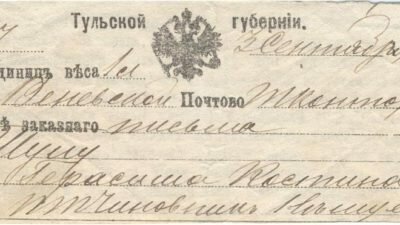 Тульской губерніи.
3 Сентября
единицъ вѣса 1 л
Веневской Почтово
заказнаго письма
Шулу
Герасима Костина
Чиновникъ